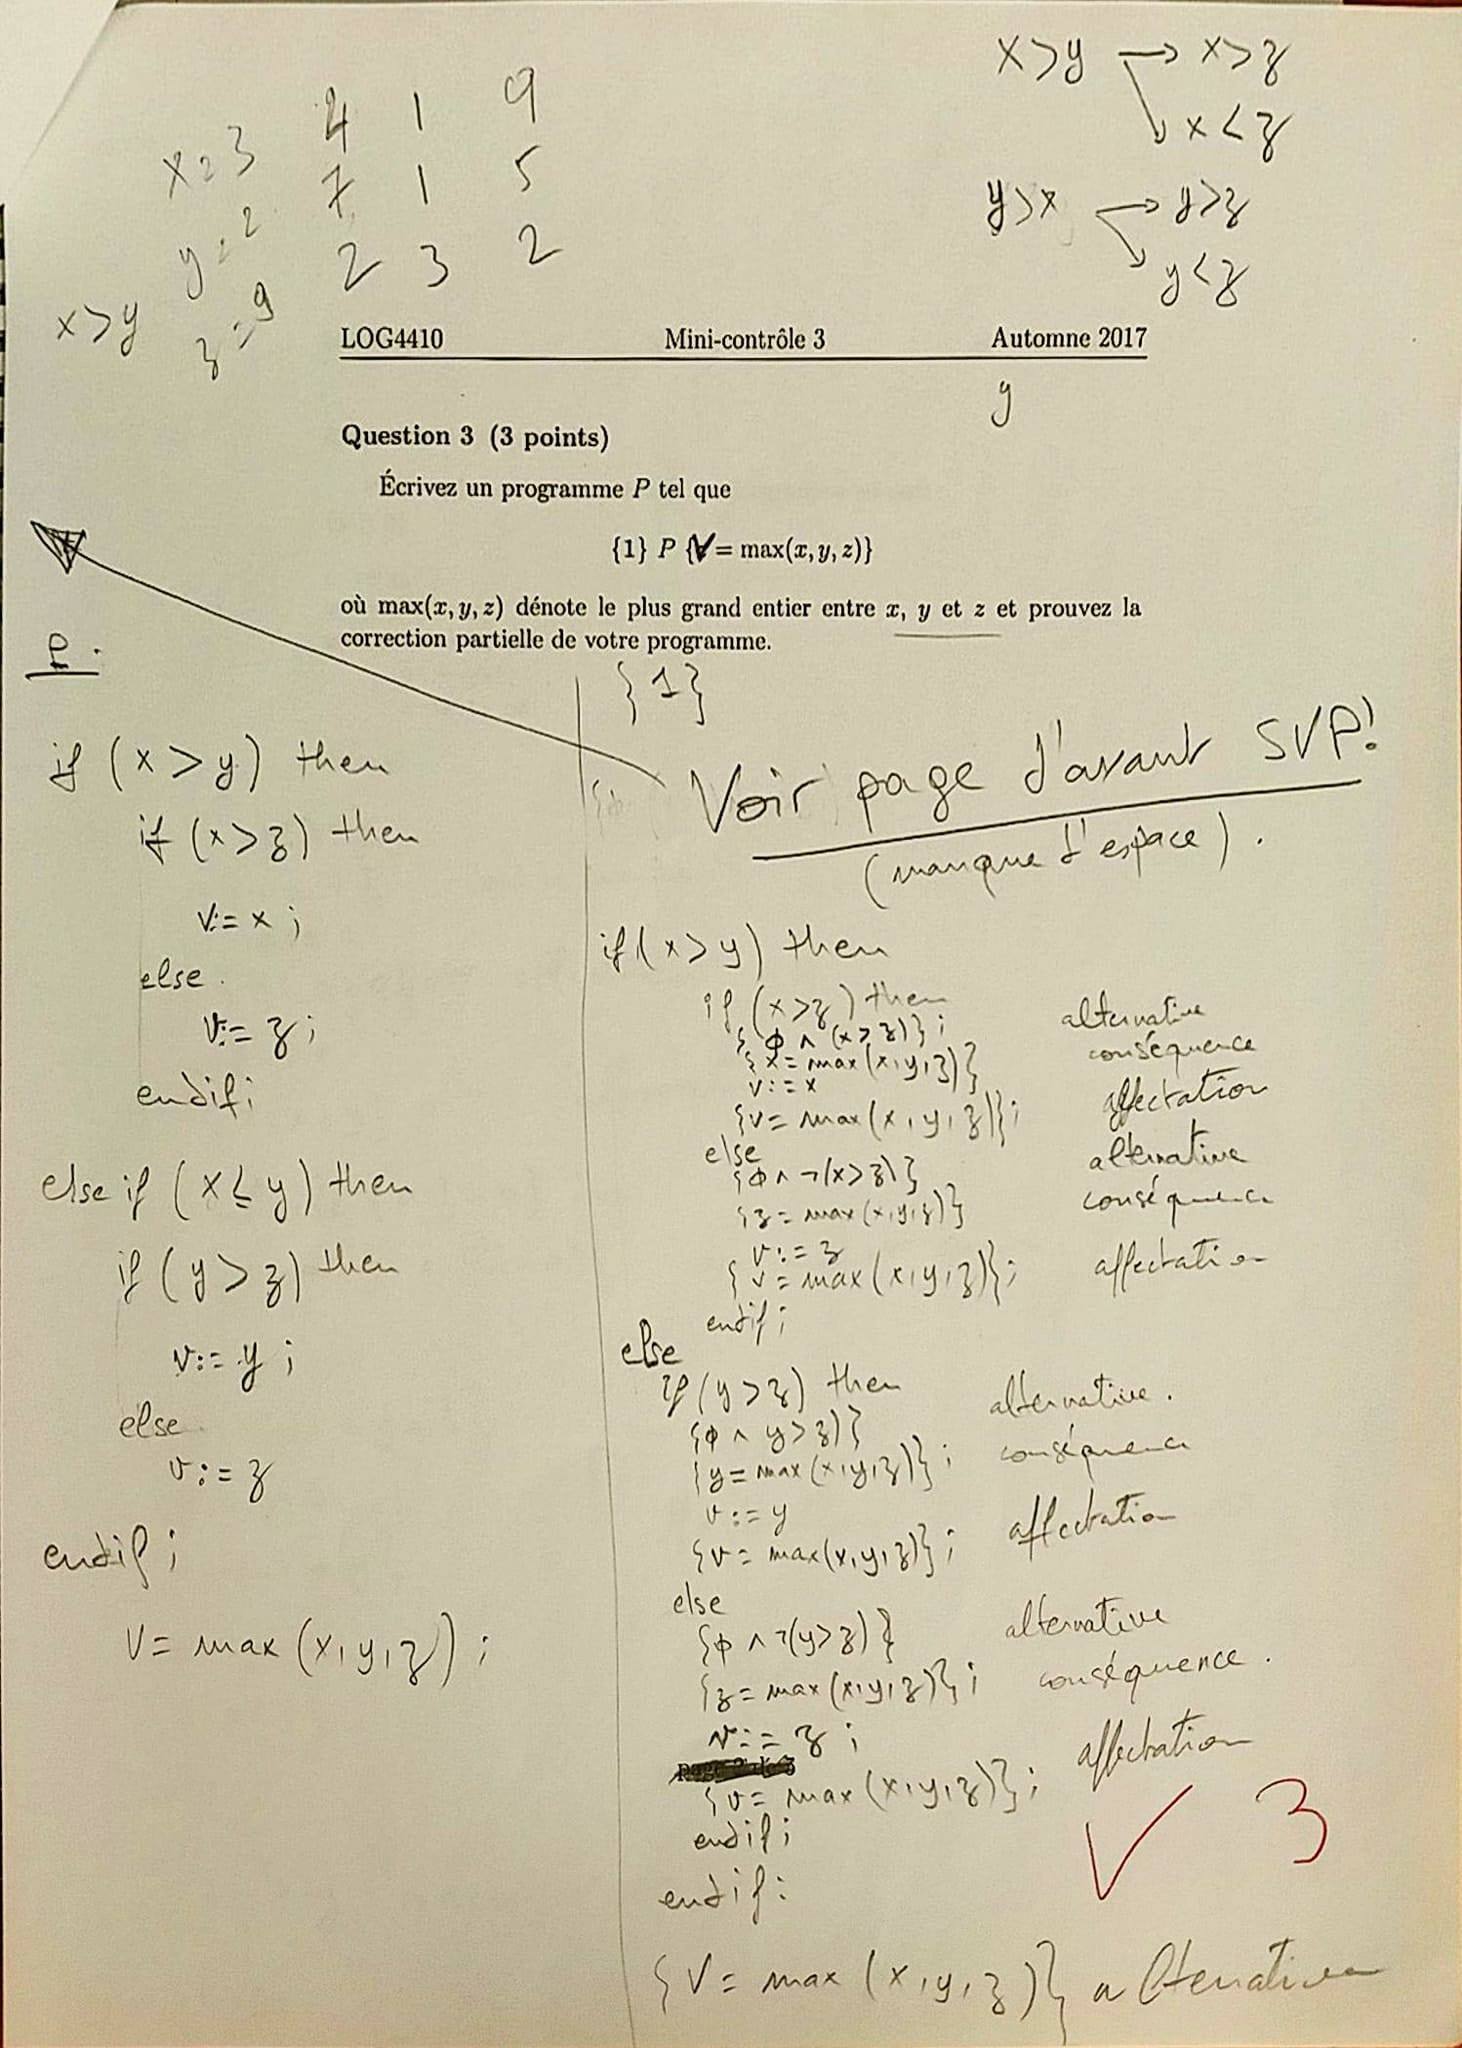 x>y → x>z
x<z
y>x → y>z
y<z
x=3 4 1 9
y=2 7 1 5
z=9 2 3 2
x>y
LOG4410 Mini-contrôle 3 Automne 2017
y
Question 3 (3 points)
Écrivez un programme P tel que
{1} P {V = max(x, y, z)}
où max(x, y, z) dénote le plus grand entier entre x, y et z et prouvez la
correction partielle de votre programme.
P.
if (x > y) then
if (x > z) then
v:= x ;
else.
v:= z ;
endif;
else if (x ≤ y) then
if (y > z) then
v:= y ;
else
v:= z
endif ;
V = max (x, y, z) ;
{1}
Voir page d'avant SVP!
(manque d'espace).
if (x > y) then
if (x>z) then
{ϕ ∧ (x > z)} ; alternative
{x = max(x,y,z)} conséquence
v:= x
{v = max(x, y, z)} ; affectation
else alternative
{ϕ ∧ ¬(x>z)}
{z = max(x,y,z)} conséquence
v:= z
{v = max(x,y,z)} ; affectation
endif ;
else
if (y > z) then alternative.
{ϕ ∧ y>z)}
{y = max(x,y,z)} ; conséquence
v:= y
{v = max(x,y,z)} ; affectation
else
{ϕ ∧ ¬(y>z)} alternative
{z = max(x,y,z)} ; conséquence.
v:= z ;
{v = max(x,y,z)} ; affectation
endif ;
endif :
3
{V = max (x, y, z)} alternative